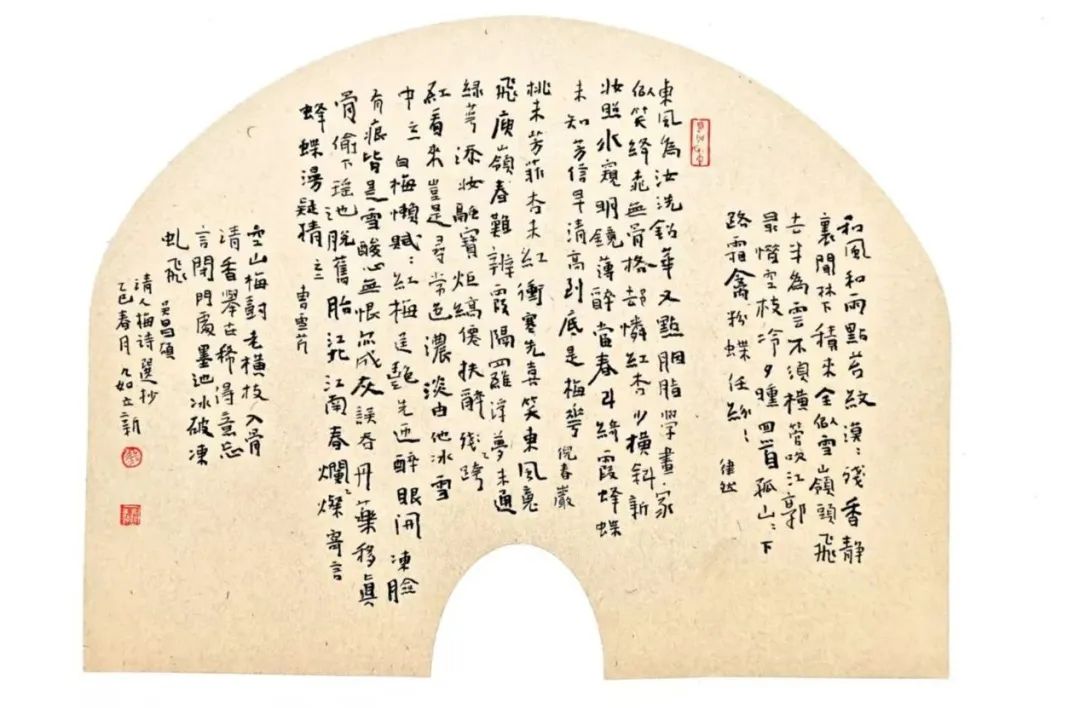 和風和雨點苔紋漠:殘香靜
裏聞林下積來全似雪嶺頭飛
去半為雲不須橫管吹江郭
最惜空枝冷夕曛回首孤山:下
路霜禽粉蝶任紛: 律然
東風為汝洗鉛華又點胭脂學畫家
似笑絳桃無骨格却憐紅杏少橫斜新
妝照水窺明鏡薄醉當春斗綺霞蜂蝶
未知芳信早清高到底是梅花 倪春巖
桃未芳菲杏未紅衝寒先喜笑東風魂
飛庾嶺春難辨霞隔羅浮夢未通
綠萼添妝融寶炬縞僊扶醉殘跨
紅看來豈是尋常色濃淡由他冰雪
中 之一 白梅懶賦賦紅梅逞艷先迎醉眼開凍臉
有痕皆是雪酸心無恨亦成灰誤吞丹藥移真
骨偷下瑤池脫舊胎江北江南春爛燦寄言
蜂蝶漫疑猜 之二 曹雪芹
空山梅樹老橫枝入骨
清香舉世稀得意忘
言閉門處墨池冰破凍
虬飛 吳昌碩
清人梅詩選抄
乙巳春月 九如立新